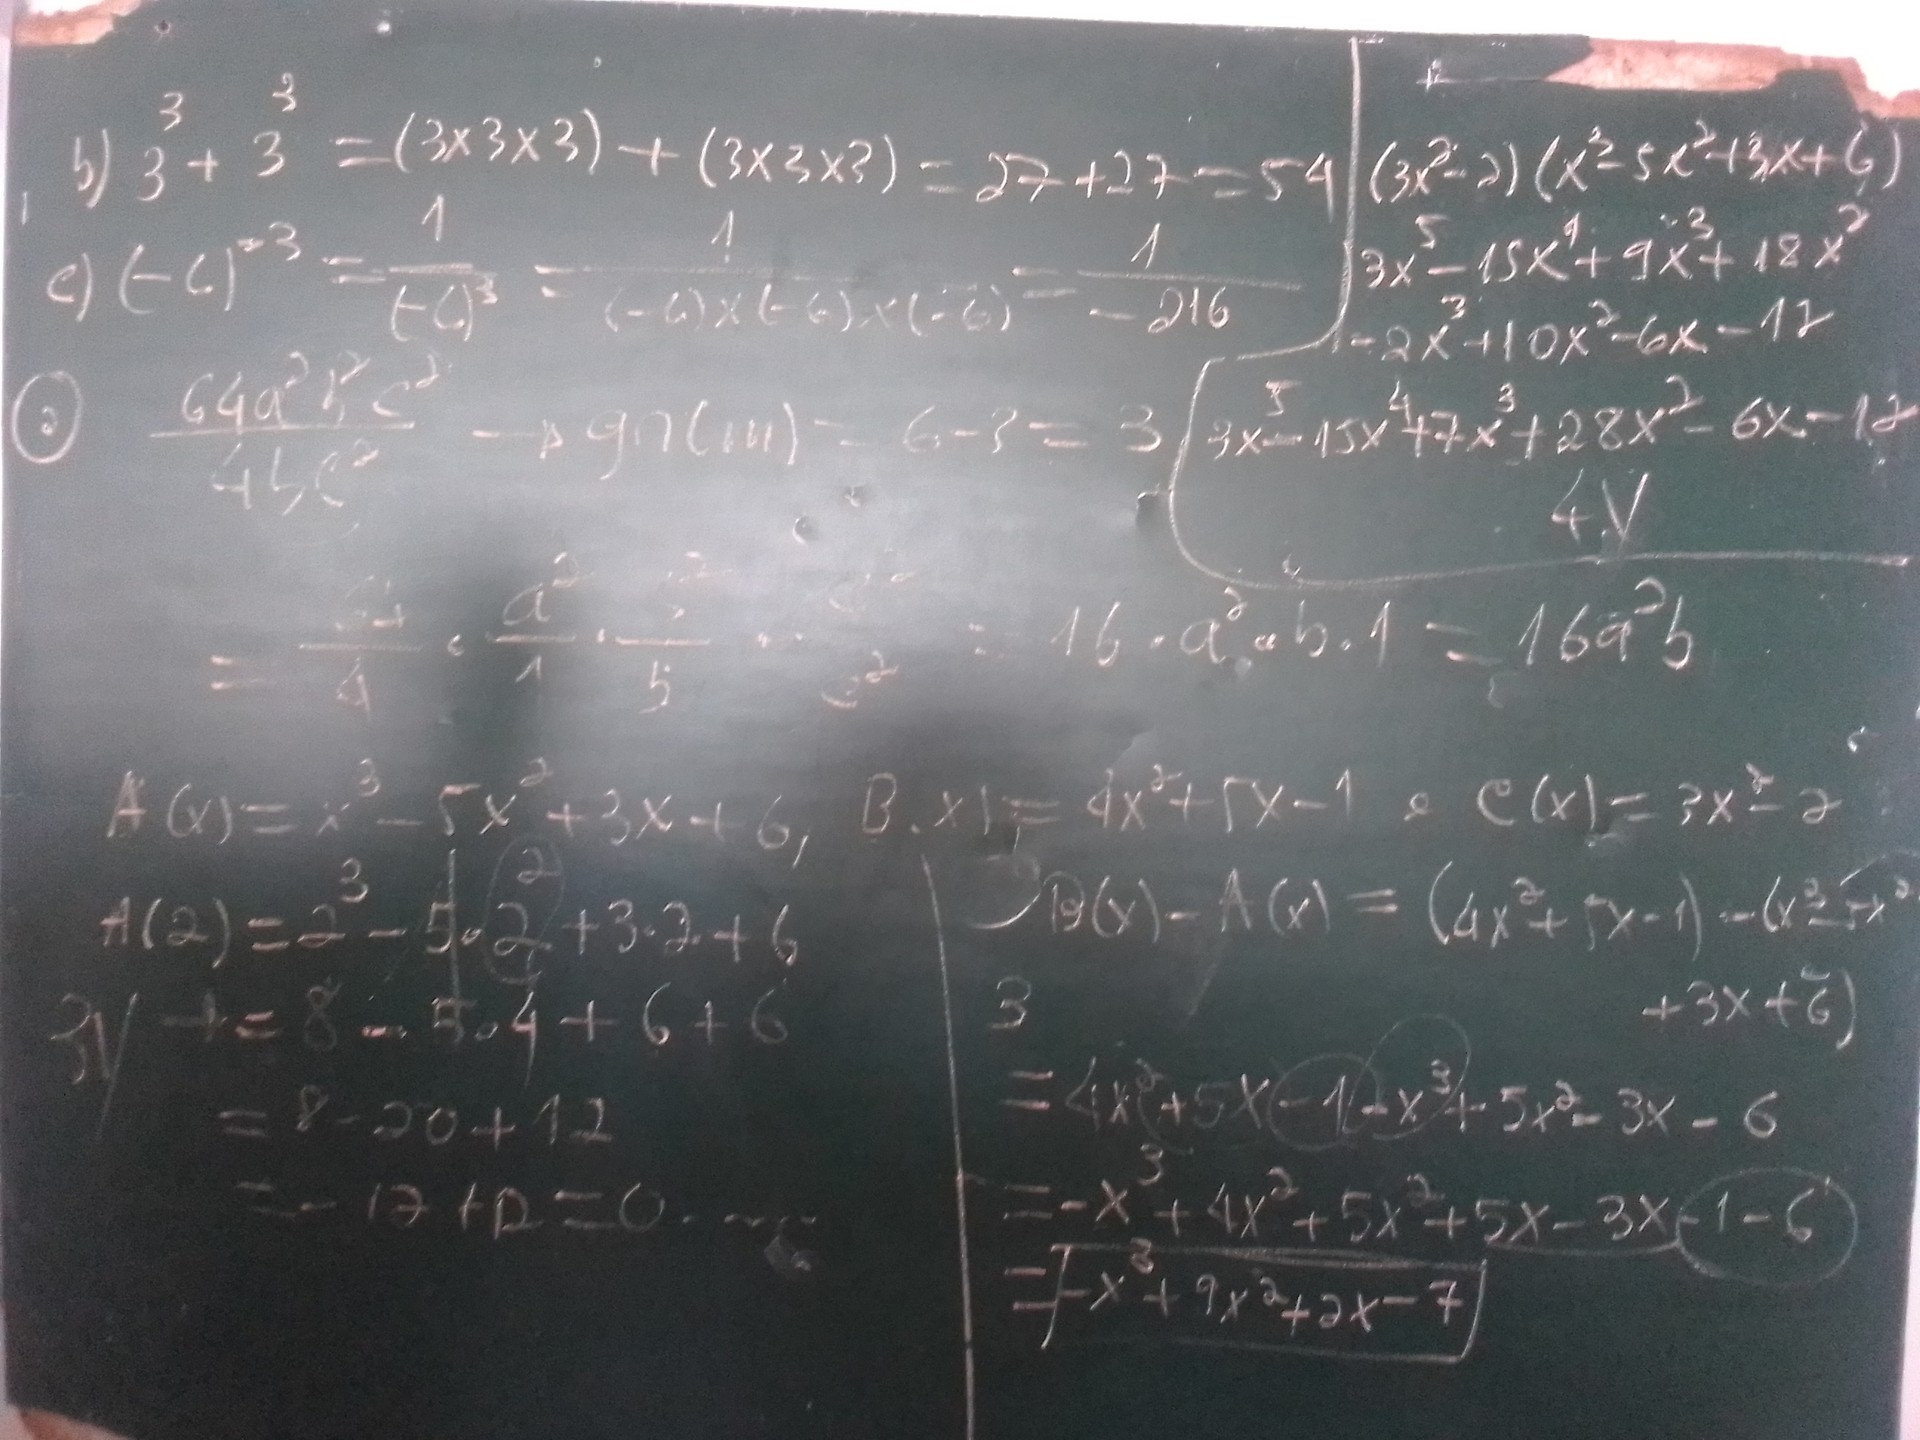 b) 3³ + 3³ = (3x3x3) + (3x3x3) = 27 + 27 = 54
c) (-6)⁻³ = 1/(-6)³ = 1/((-6)x(-6)x(-6)) = 1/-216
② 64a²b²c²/4bc² → gr(m) = 6-3 = 3
= /4 · a²/1 · = 16 · a² · b · 1 = 16a²b
(3x²-2)(x³-5x²+3x+6)
3x⁵ - 15x⁴ + 9x³ + 18x²
-2x³+10x²-6x-12
3x⁵-15x⁴+7x³+28x²-6x-12
4V
A(x) = x³ - 5x² + 3x + 6, B(x) = 4x² + 5x - 1 e C(x) = 3x² - 2
A(2) = 2³ - 5·2² + 3·2 + 6
3V = 8 - 5·4 + 6 + 6
= 8 - 20 + 12
= -12 + 12 = 0
B(x) - A(x) = (4x² + 5x - 1) - (x³ - 5x²
3
+3x+6)
= 4x² + 5x - 1 - x³ + 5x² - 3x - 6
= -x³ + 4x² + 5x² + 5x - 3x - 1 - 6
= -x³ + 9x² + 2x - 7